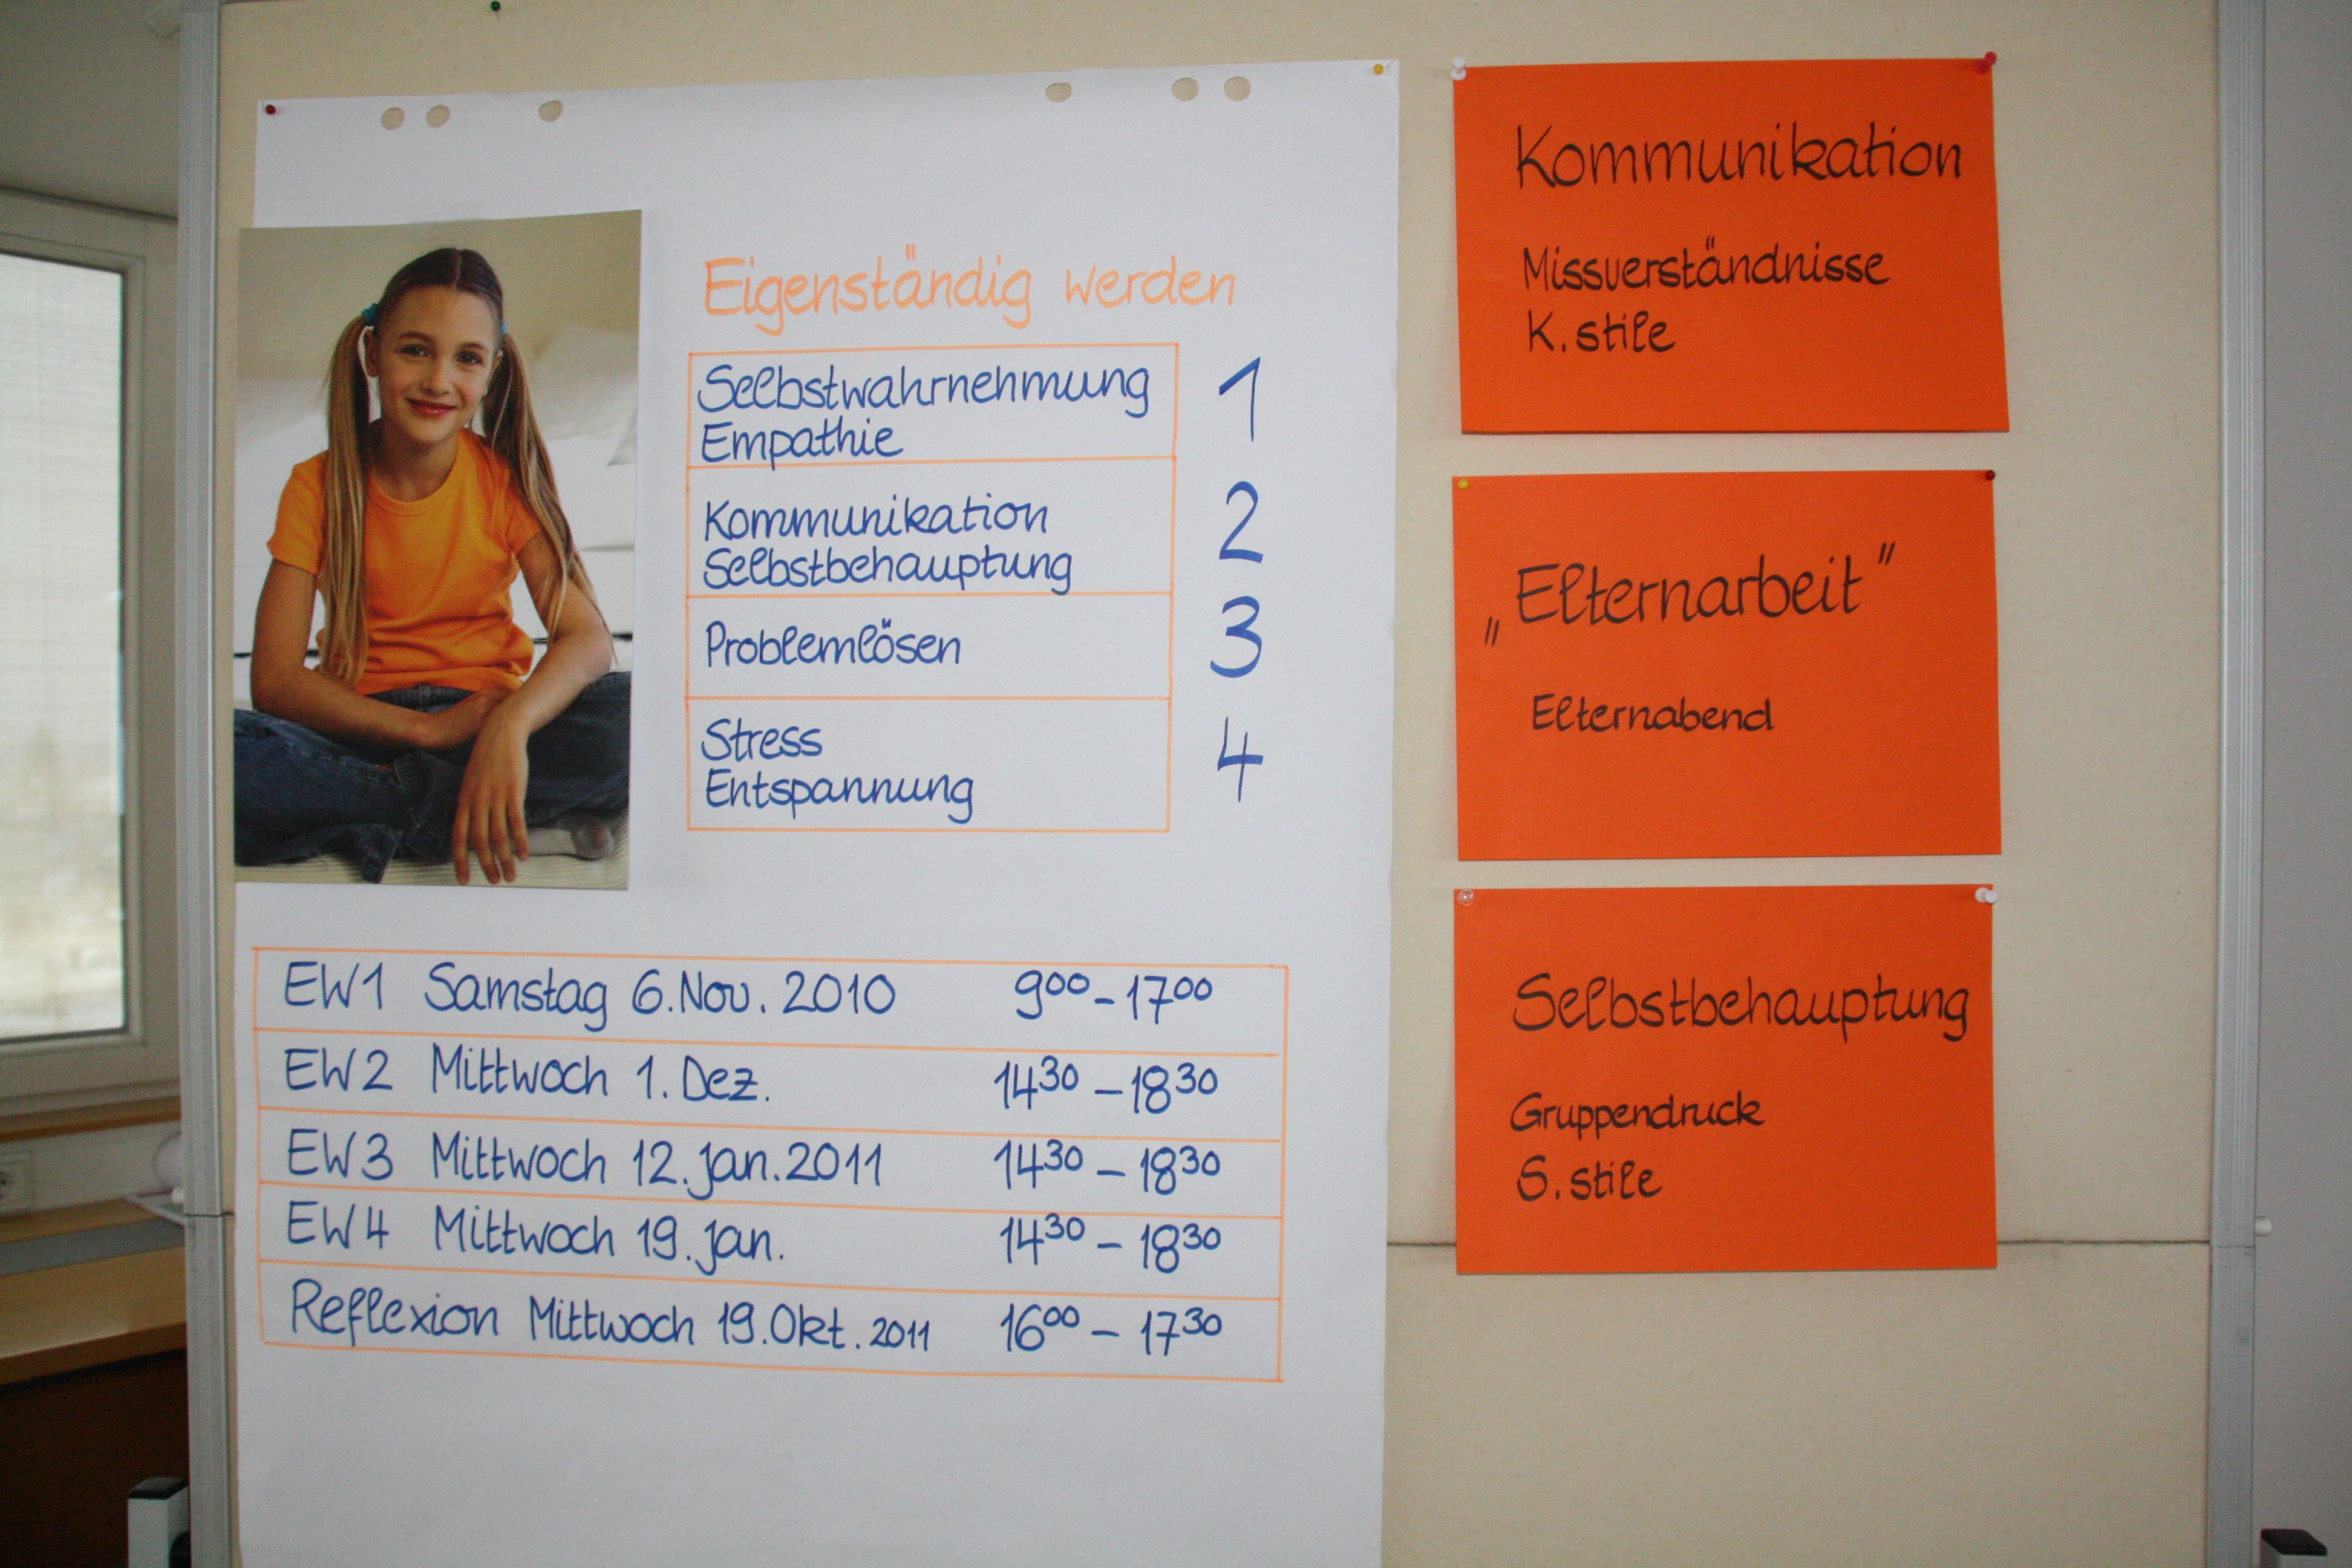 Eigenständig werden
Selbstwahrnehmung 1
Empathie
Kommunikation 2
Selbstbehauptung
Problemlösen 3
Stress 4
Entspannung
EW1 Samstag 6. Nov. 2010 9⁰⁰ – 17⁰⁰
EW2 Mittwoch 1. Dez. 14³⁰ – 18³⁰
EW3 Mittwoch 12. Jan. 2011 14³⁰ – 18³⁰
EW4 Mittwoch 19. Jan. 14³⁰ – 18³⁰
Reflexion Mittwoch 19. Okt. 2011 16⁰⁰ – 17³⁰
Kommunikation
Missverständnisse
K. stile
„Elternarbeit"
Elternabend
Selbstbehauptung
Gruppendruck
S. stile